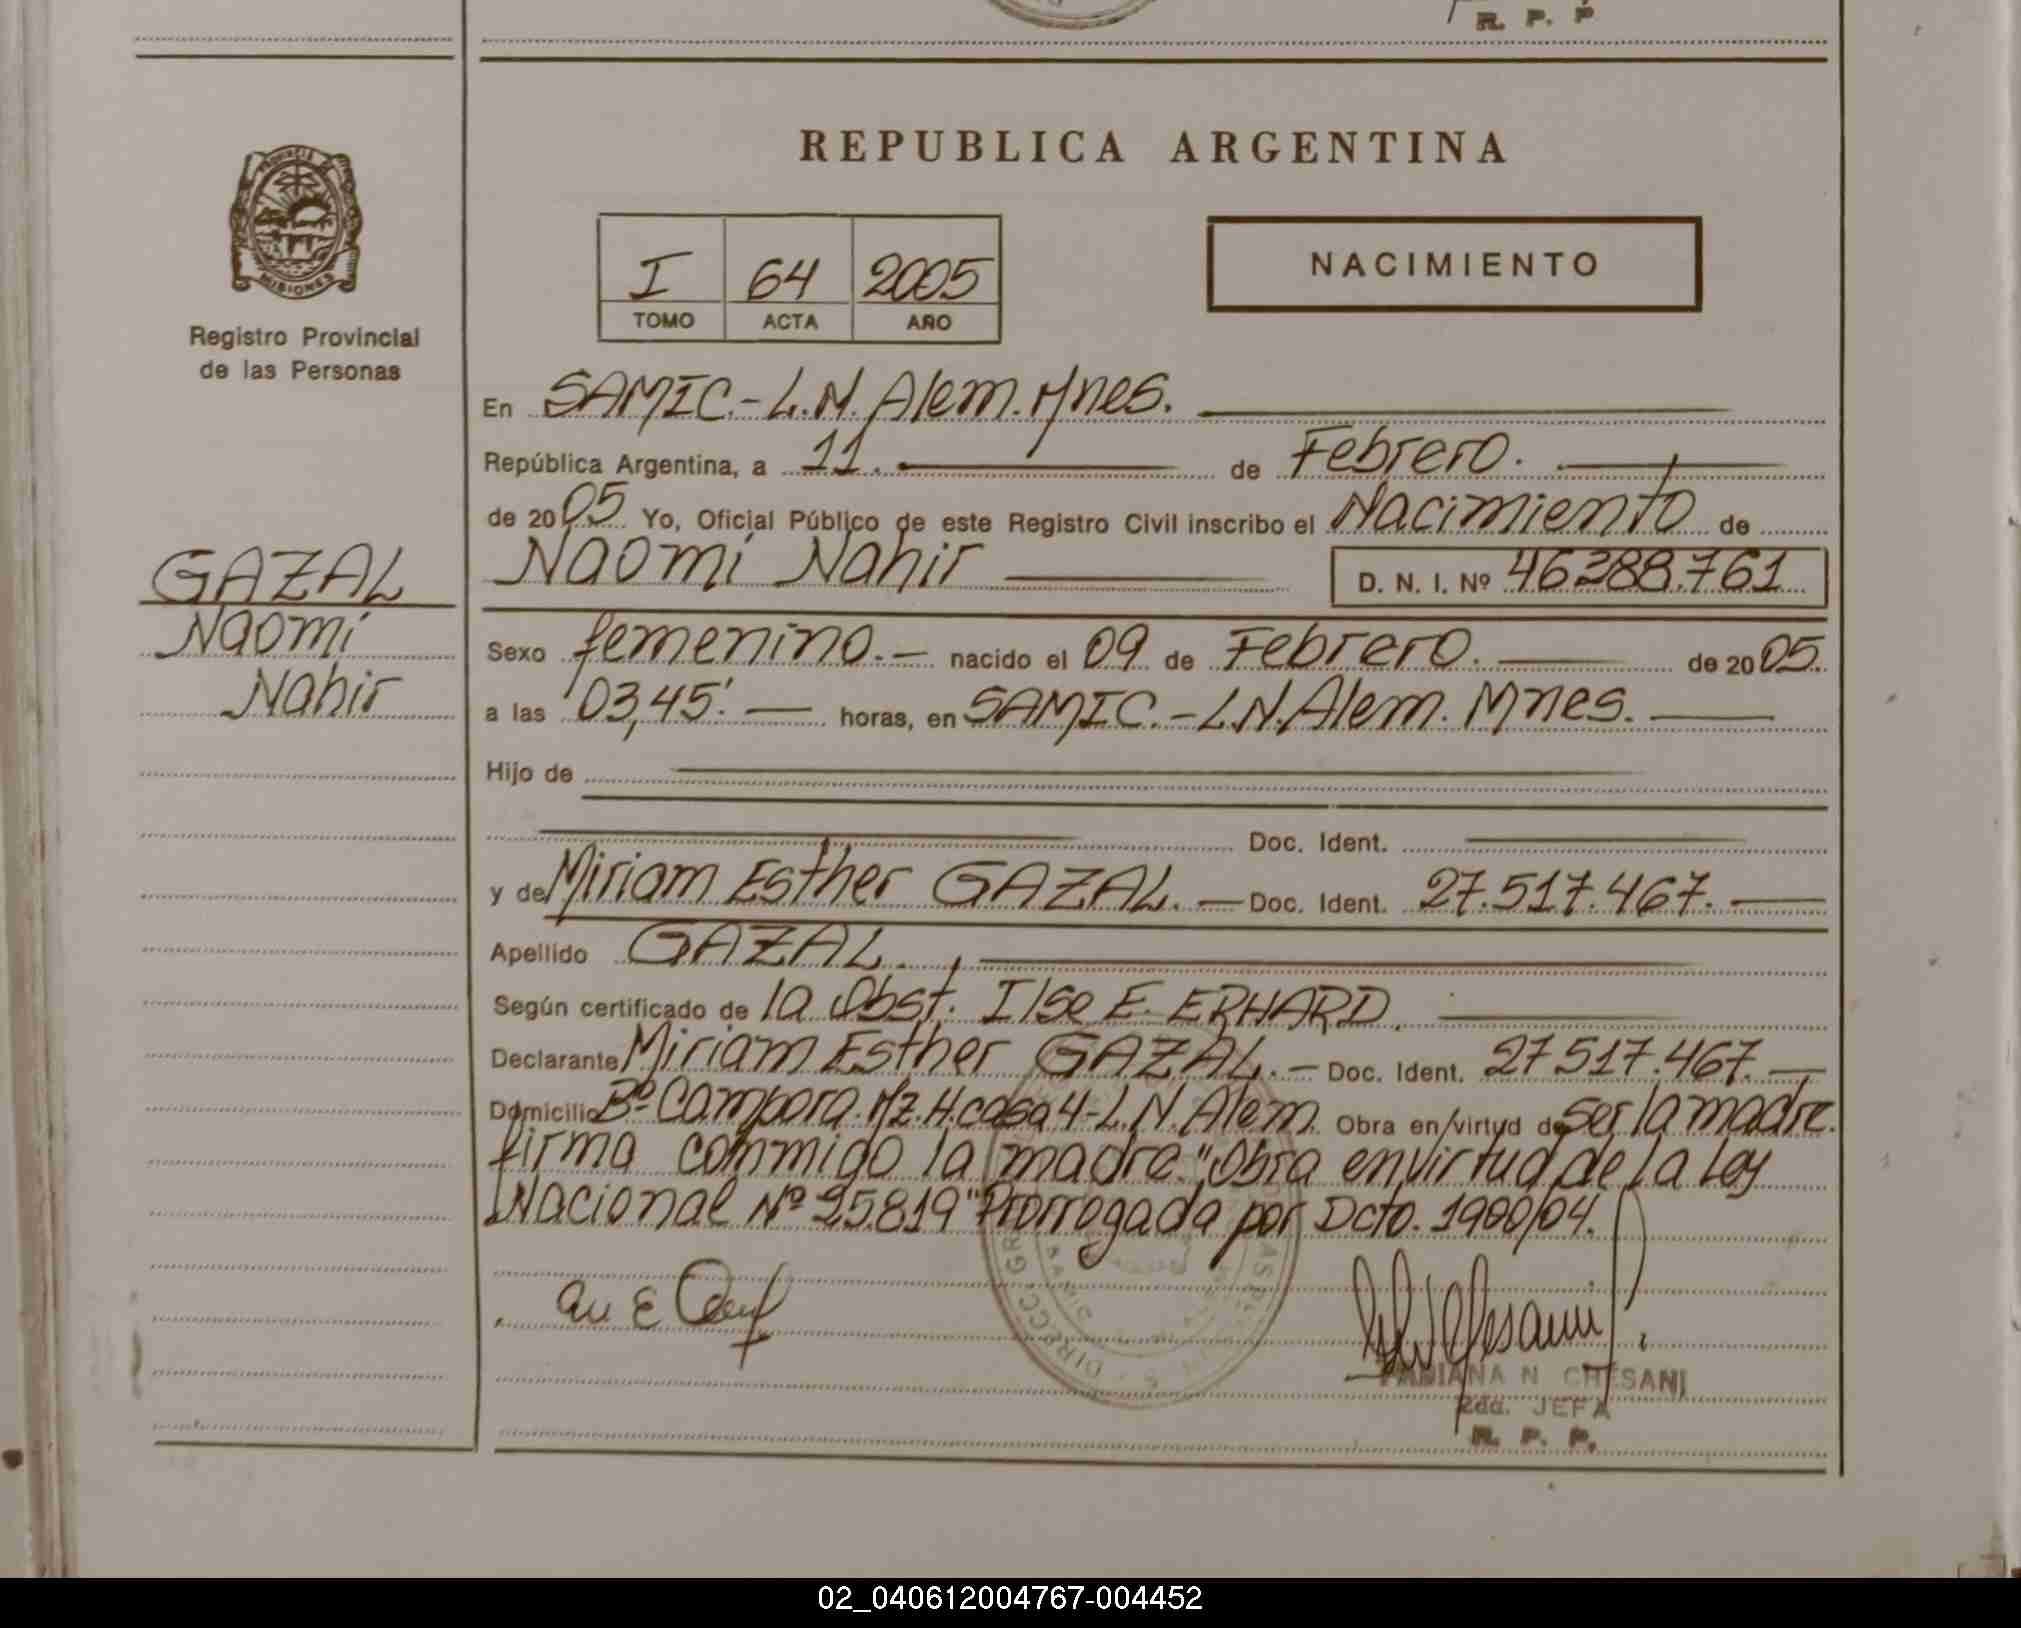 R. P. P
PROVINCIA DE
MISIONES
Registro Provincial
de las Personas
GAZAL
Naomí
Nahir
REPUBLICA ARGENTINA
I 64 2005
TOMO ACTA AÑO
NACIMIENTO
En SAMIC.- L.N. Alem. Mnes.
República Argentina, a 11. de Febrero.
de 2005 Yo, Oficial Público de este Registro Civil inscribo el Nacimiento de
Naomí Nahir D. N. I. Nº 46388.761
Sexo femenino.- nacido el 09 de Febrero. de 2005.
a las 03,45'. horas, en SAMIC.- L.N. Alem. Mnes.
Hijo de
Doc. Ident.
y de Miriam Esther GAZAL. - Doc. Ident. 27.517.467.
Apellido GAZAL.
Según certificado de la Obst. Ilse E. ERHARD.
Declarante Miriam Esther GAZAL. - Doc. Ident. 27517.467.
Domicilio Bº Campora. Mz. H. casa 4-L.N. Alem. Obra en/virtud de ser la madre.
firma commigo la madre. "Obra en virtud de la Ley
Nacional Nº 25.819" Prorrogada por Dcto. 1900/04.
FABIANA N CHESANI
2da. JEFA
R. P. P.
02_040612004767-004452